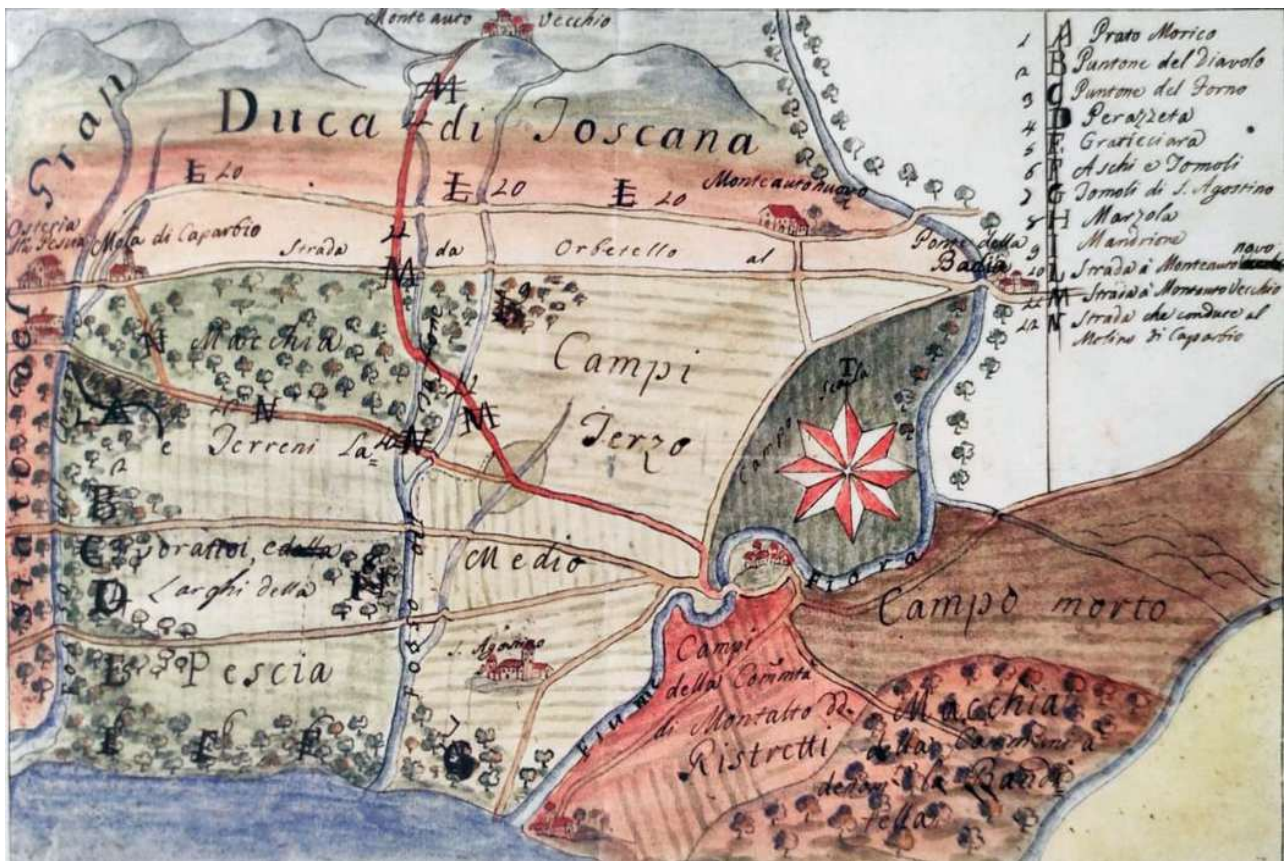 Monte auto Vecchio
Duca di Toscana
Gran
Stato del
L 20
L 20
L 20
Monteauto nuovo
Osteria
Mola di Caparbio
Strada da Orbetello al
Ponte della
Badia
M
22
M
22
M
Macchia
N
N
N
e Terreni La=
Campi
Terzo
Campo Scala
T
A
B
C
D
E
voratioi, e della
Larghi della
H
Medio
Pescia
S. Agostino
G
Fosso
Fiora
Fiume
Campo morto
Campi
della Commtà
di Montalto
Ristretti
Macchia
della Communità
denomta la Bandi
tella
1 A Prato Morico
2 B Puntone del Diavolo
3 C Puntone del Forno
4 D Perazzeta
5 E Graticciara
6 F Aschi e Tomoli
7 G Tomoli di S. Agostino
8 H Marzola
9 I Mandrione
20 L Strada à Monteauto novo
22 M Strada à Montauto Vecchio
22 N Strada che conduce al
Molino di Caparbio